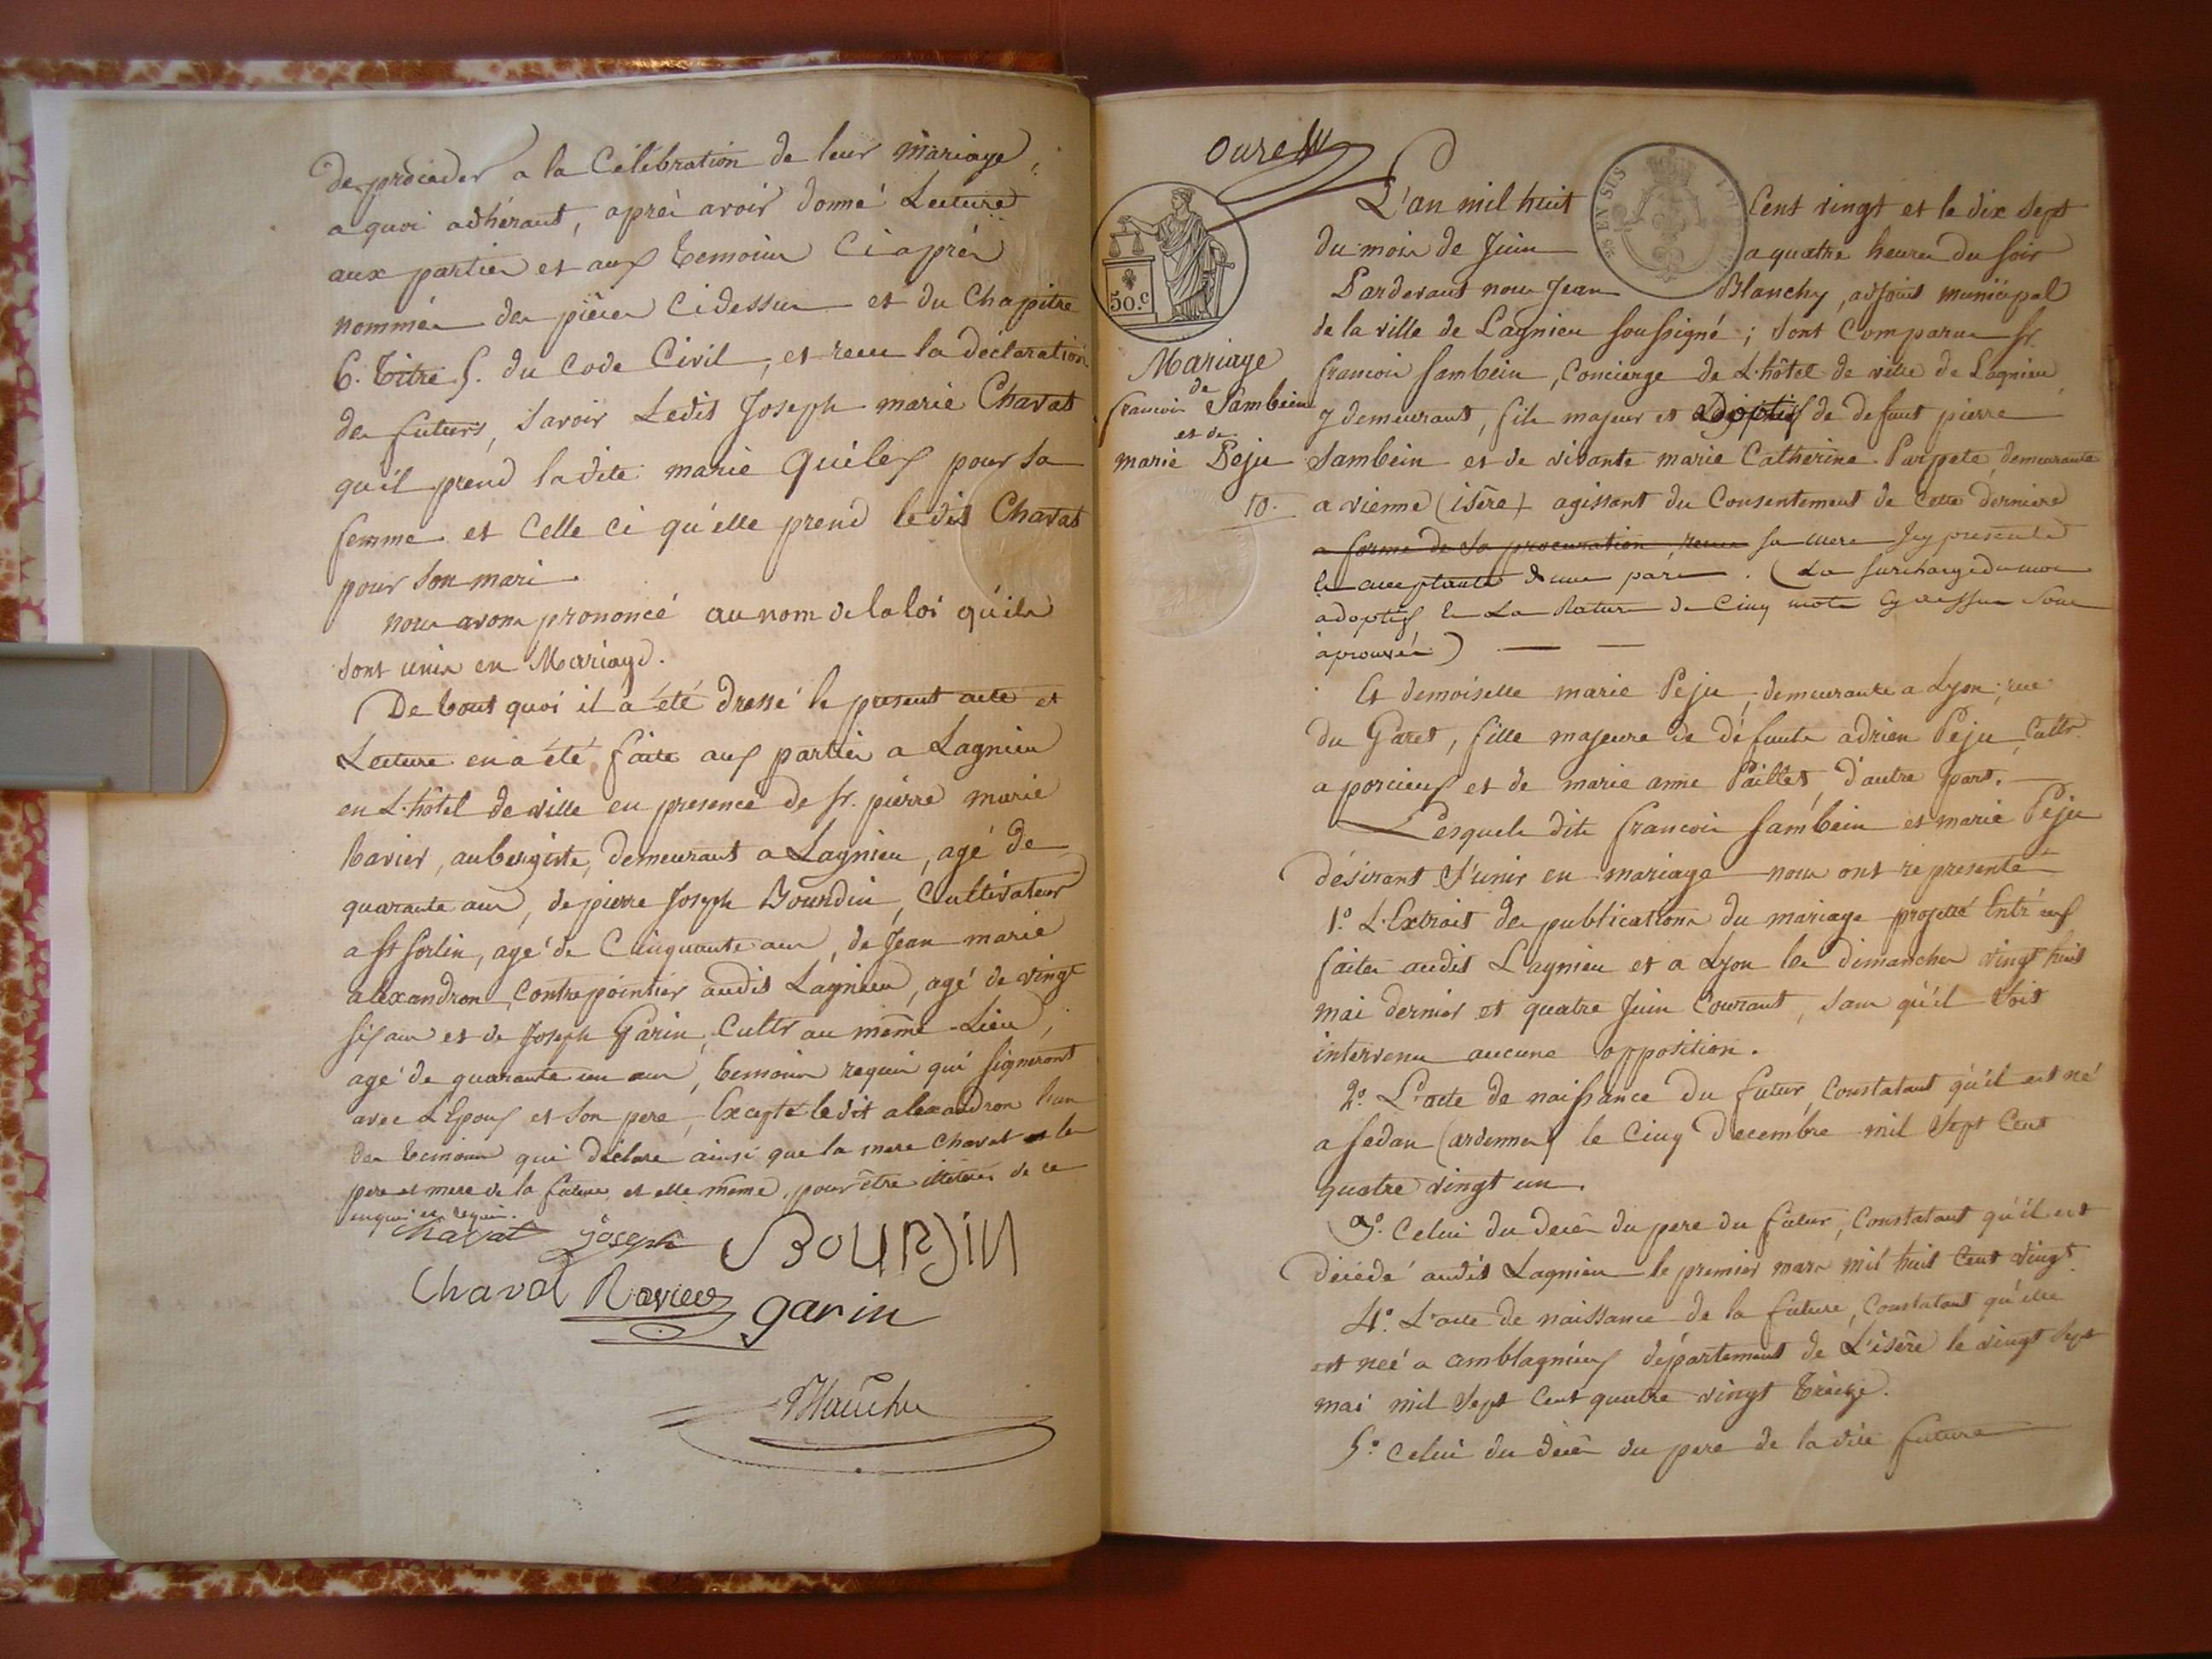 de procéder a la Célébration de leur Mariage,
a quoi adhérant, aprés avoir donné Lecture
aux parties et aux temoins Ci aprés
nommés des pièces Cidessus et du Chapitre
6. Titre 5. du Code Civil, et recu la déclaration
des futurs, Savoir Ledit Joseph marie Chavat
qu'il prend ladite marie Quilex pour Sa
femme et Celle Ci qu'elle prend ledit Chavat
pour Son mari.
nous avons prononcé au nom de la loi qu'ils
sont unis en Mariage.
De tout quoi il a été dressé le present acte et
Lecture en a été faite aux parties a Lagnieu
en L'hôtel de ville en presence de Sr. pierre marie
Ravier, aubergiste, demeurant a Lagnieu, agé de
quarante ans, de pierre Joseph Bourdin, Cultivateur
a St Sorlin, agé de Cinquante ans, de Jean marie
alexandron, Contrepointier audit Lagnieu, agé de vingt
six ans et de Joseph Garin, Cultr au même Lieu,
agé de quarante un ans, temoins requis qui signeront
avec L'Epoux et Son pere, Excepté ledit alexandron l'un
des temoins qui déclare ainsi que la mere Chavat et les
pere et mere de la future et elle même, pour être illetérés de ce
enquis et requis.
Chavat joseph BOURDIN
Chavat Ravier garin
Blanchy
L'an mil huit Cent vingt et le dix sept
du mois de Juin a quatre heures du soir
Pardevant nous Jean Blanchy, adjoint municipal
de la ville de Lagnieu soussigné; sont Comparus Sr.
50.c
25 EN SUS
Mariage
de
francois Sambein
et de
marie Peju
10.
francois Sambein, Concierge de L'hôtel de ville de Lagnieu
y demeurant, fils majeur et adoptif de defunt pierre
Sambein et de vivante marie Catherine Parpete, demeurante
a vienne (isère) agissant du Consentement de Cette derniere
a forme de sa procuration, recue sa mere Icy presente
le acceptante d'une part. (La surcharge du mot
adoptif et La Rature de Cinq mots cy dessus Sont
aprouvés)
Et demoiselle marie Peju, demeurante a Lyon, rue
du Garet, fille majeure de défunts adrien Peju, Cultr.
a porcieux et de marie anne Paillet, d'autre part.
Lesquels dits francois Sambein et marie Peju
désirant s'unir en mariage nous ont représenté
1.° L'Extrait des publications du mariage projetté Entr'eux
faites audit Lagnieu et a Lyon les dimanches vingt huit
mai dernier et quatre Juin Courant, sans qu'il soit
intervenu aucune opposition.
2.° L'acte de naissance du futur, Constatant qu'il est né
a Sedan (ardennes) le Cinq Decembre mil Sept Cent
quatre vingt un.
3.° Celui du decès du pere du futur, Constatant qu'il est
décédé audit Lagnieu le premier mars mil huit Cent vingt.
4.° L'acte de naissance de la future, Constatant qu'elle
est neé a amblagnieux département de L'isère le vingt sept
mai mil sept Cent quatre vingt treize.
5.° Celui du decès du pere de la dite future